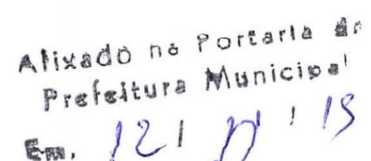 Afixado na Portaria da
Prefeitura Municipal
Em, 12 / 11 / 19